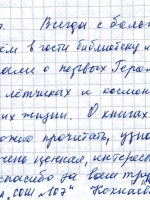 . Всегда с боль
ем в гости библиотеку и
али о первых Геро
лётчиках и космон
их жизни. О книгах
ожно прочитать, узна
чень ценная, интерес
спасибо за ваш тру
"СОШ №107"